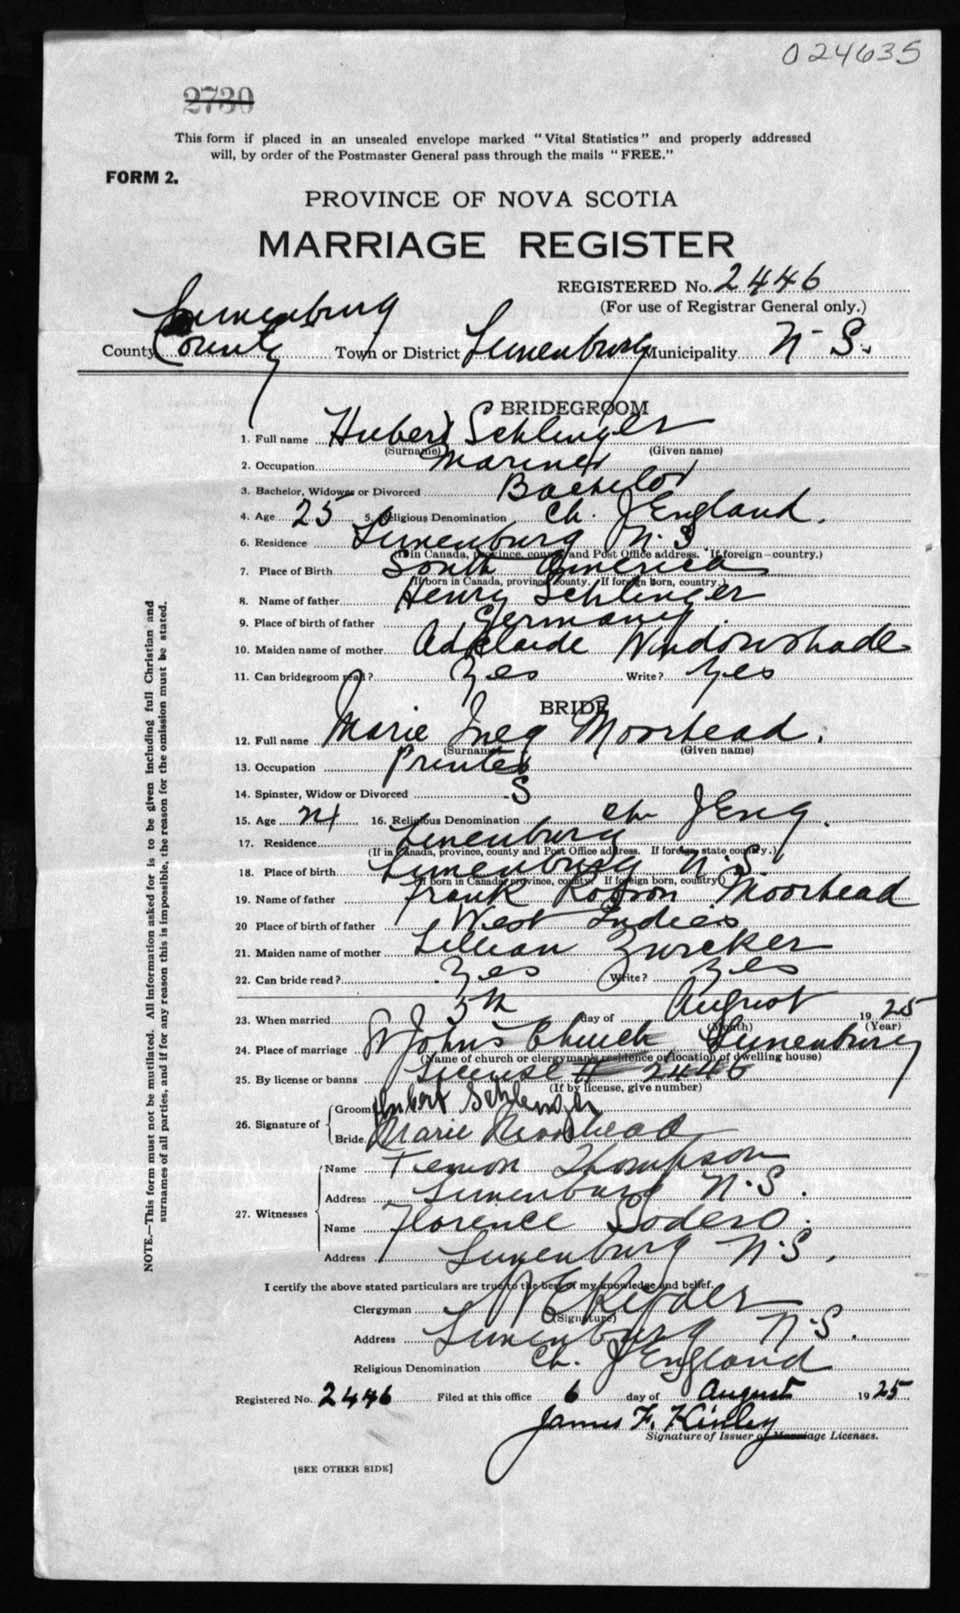 024635
2730
This form if placed in an unsealed envelope marked "Vital Statistics" and properly addressed
will, by order of the Postmaster General pass through the mails "FREE."
FORM 2.
PROVINCE OF NOVA SCOTIA
MARRIAGE REGISTER
REGISTERED No. 2446
(For use of Registrar General only.)
Lunenburg
County County Town or District Lunenburg Municipality N S.
BRIDEGROOM
1. Full name Hubert Schlinger
(Surname) (Given name)
2. Occupation Mariner
3. Bachelor, Widower or Divorced Bachelor
4. Age 25 5. Religious Denomination Ch. of England.
6. Residence Lunenburg N.S
(If in Canada, province, county and Post Office address. If foreign—country.)
7. Place of Birth South America
(If born in Canada, province, county. If foreign born, country.)
8. Name of father Henry Schlinger
9. Place of birth of father Germany
10. Maiden name of mother Adelaide Windowshade
11. Can bridegroom read? Yes Write? Yes
BRIDE
12. Full name Marie Moorhead.
(Surname) (Given name)
13. Occupation Printer
14. Spinster, Widow or Divorced S
15. Age 21 16. Religious Denomination Ch of Eng.
17. Residence Lunenburg
(If in Canada, province, county and Post Office address. If foreign state country.)
18. Place of birth Lunenburg N.S.
(If born in Canada, province, county. If foreign born, country.)
19. Name of father Frank Robson Moorhead
20 Place of birth of father West Indies
21. Maiden name of mother Lillian Zwicker
22. Can bride read? Yes Write? Yes
23. When married 5th day of August 1925
(Month) (Year)
24. Place of marriage St Johns Church Lunenburg
(Name of church or clergyman's residence or location of dwelling house)
25. By license or banns License # 2446
(If by license, give number)
26. Signature of Groom Hubert Schlenzger
Bride Marie Moorhead
27. Witnesses Name Thompson
Address Lunenburg N.S.
Name Florence Sodero.
Address Lunenburg N.S.
I certify the above stated particulars are true to the best of my knowledge and belief.
Clergyman W E Ryder
(Signature)
Address Lunenburg N.S.
Religious Denomination Ch. of England
Registered No. 2446 Filed at this office 6 day of August 1925
James F. Kinley
Signature of Issuer of Marriage Licenses.
[SEE OTHER SIDE]
NOTE.—This form must not be mutilated. All information asked for is to be given including full Christian and
surnames of all parties, and if for any reason this is impossible, the reason for the omission must be stated.